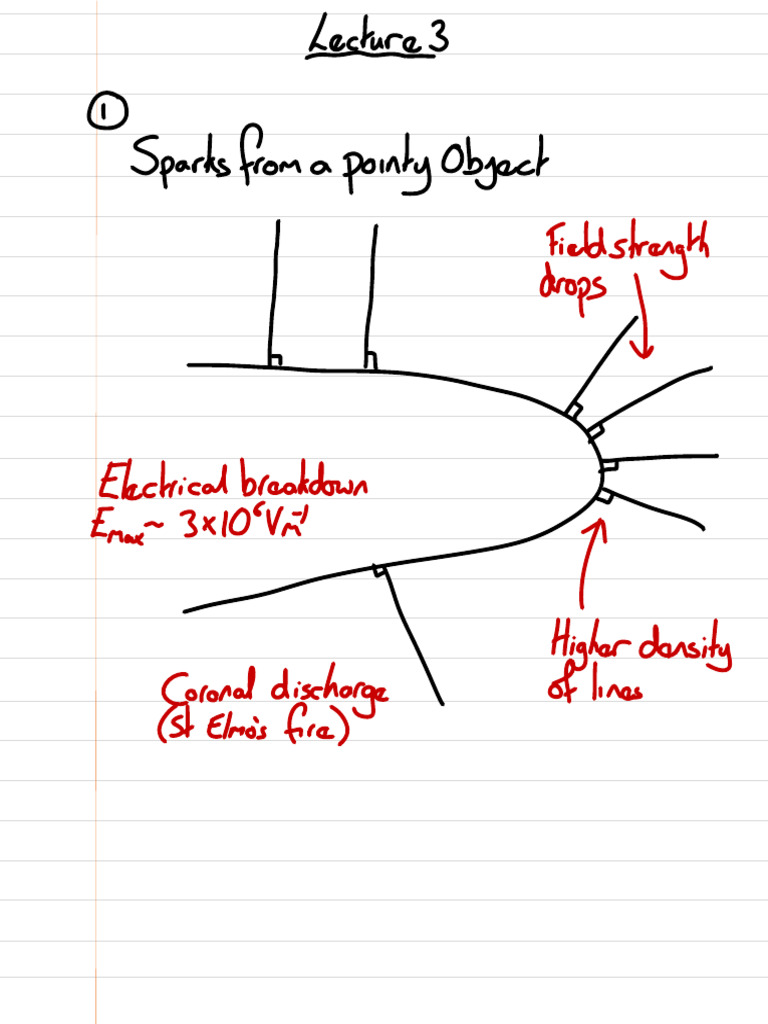 Lecture 3
①
Sparks from a pointy Object
Field strength
drops
Electrical breakdown
Eₘₐₓ ~ 3×10⁶Vm⁻¹
Higher density
of lines
Coronal discharge
(St Elmo's fire)